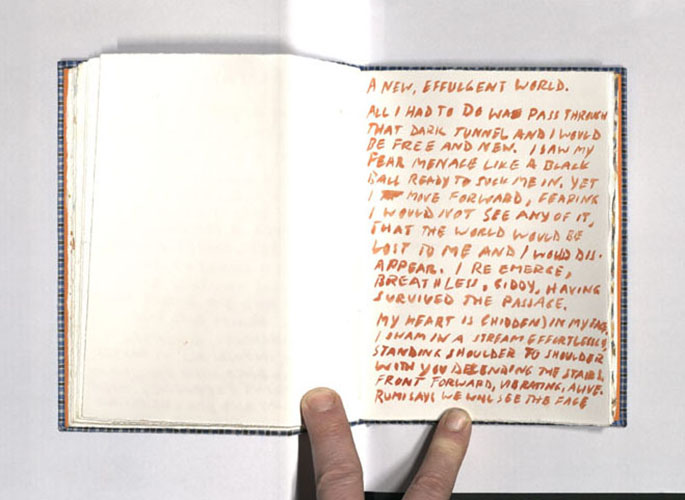 A NEW, EFFULGENT WORLD.
ALL I HAD TO DO WAS PASS THROUGH
THAT DARK TUNNEL AND I WOULD
BE FREE AND NEW. I SAW MY
FEAR MENACE LIKE A BLACK
BALL READY TO SUCK ME IN. YET
I MOVE FORWARD, FEARING
I WOULD NOT SEE ANY OF IT,
THAT THE WORLD WOULD BE
LOST TO ME AND I WOULD DIS-
APPEAR. I RE EMERGE,
BREATHLESS, GIDDY, HAVING
SURVIVED THE PASSAGE.
MY HEART IS (HIDDEN) IN MY
I SWAM IN A STREAM EFFORTLESSLY,
STANDING SHOULDER TO SHOULDER
WITH YOU THE STAIRS,
FRONT FORWARD, VIBRATING, ALIVE.
RUMI SAYS WE WILL SEE THE FACE